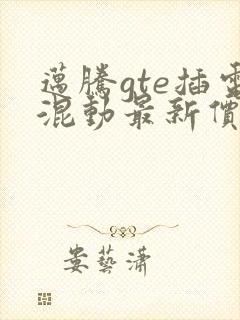 邁騰gte插電
混動最新價
婁藝瀟